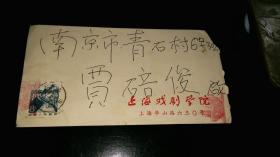 南京市青石村68号
賈碚俊 啟
上海戏剧学院
上海华山路六三〇号